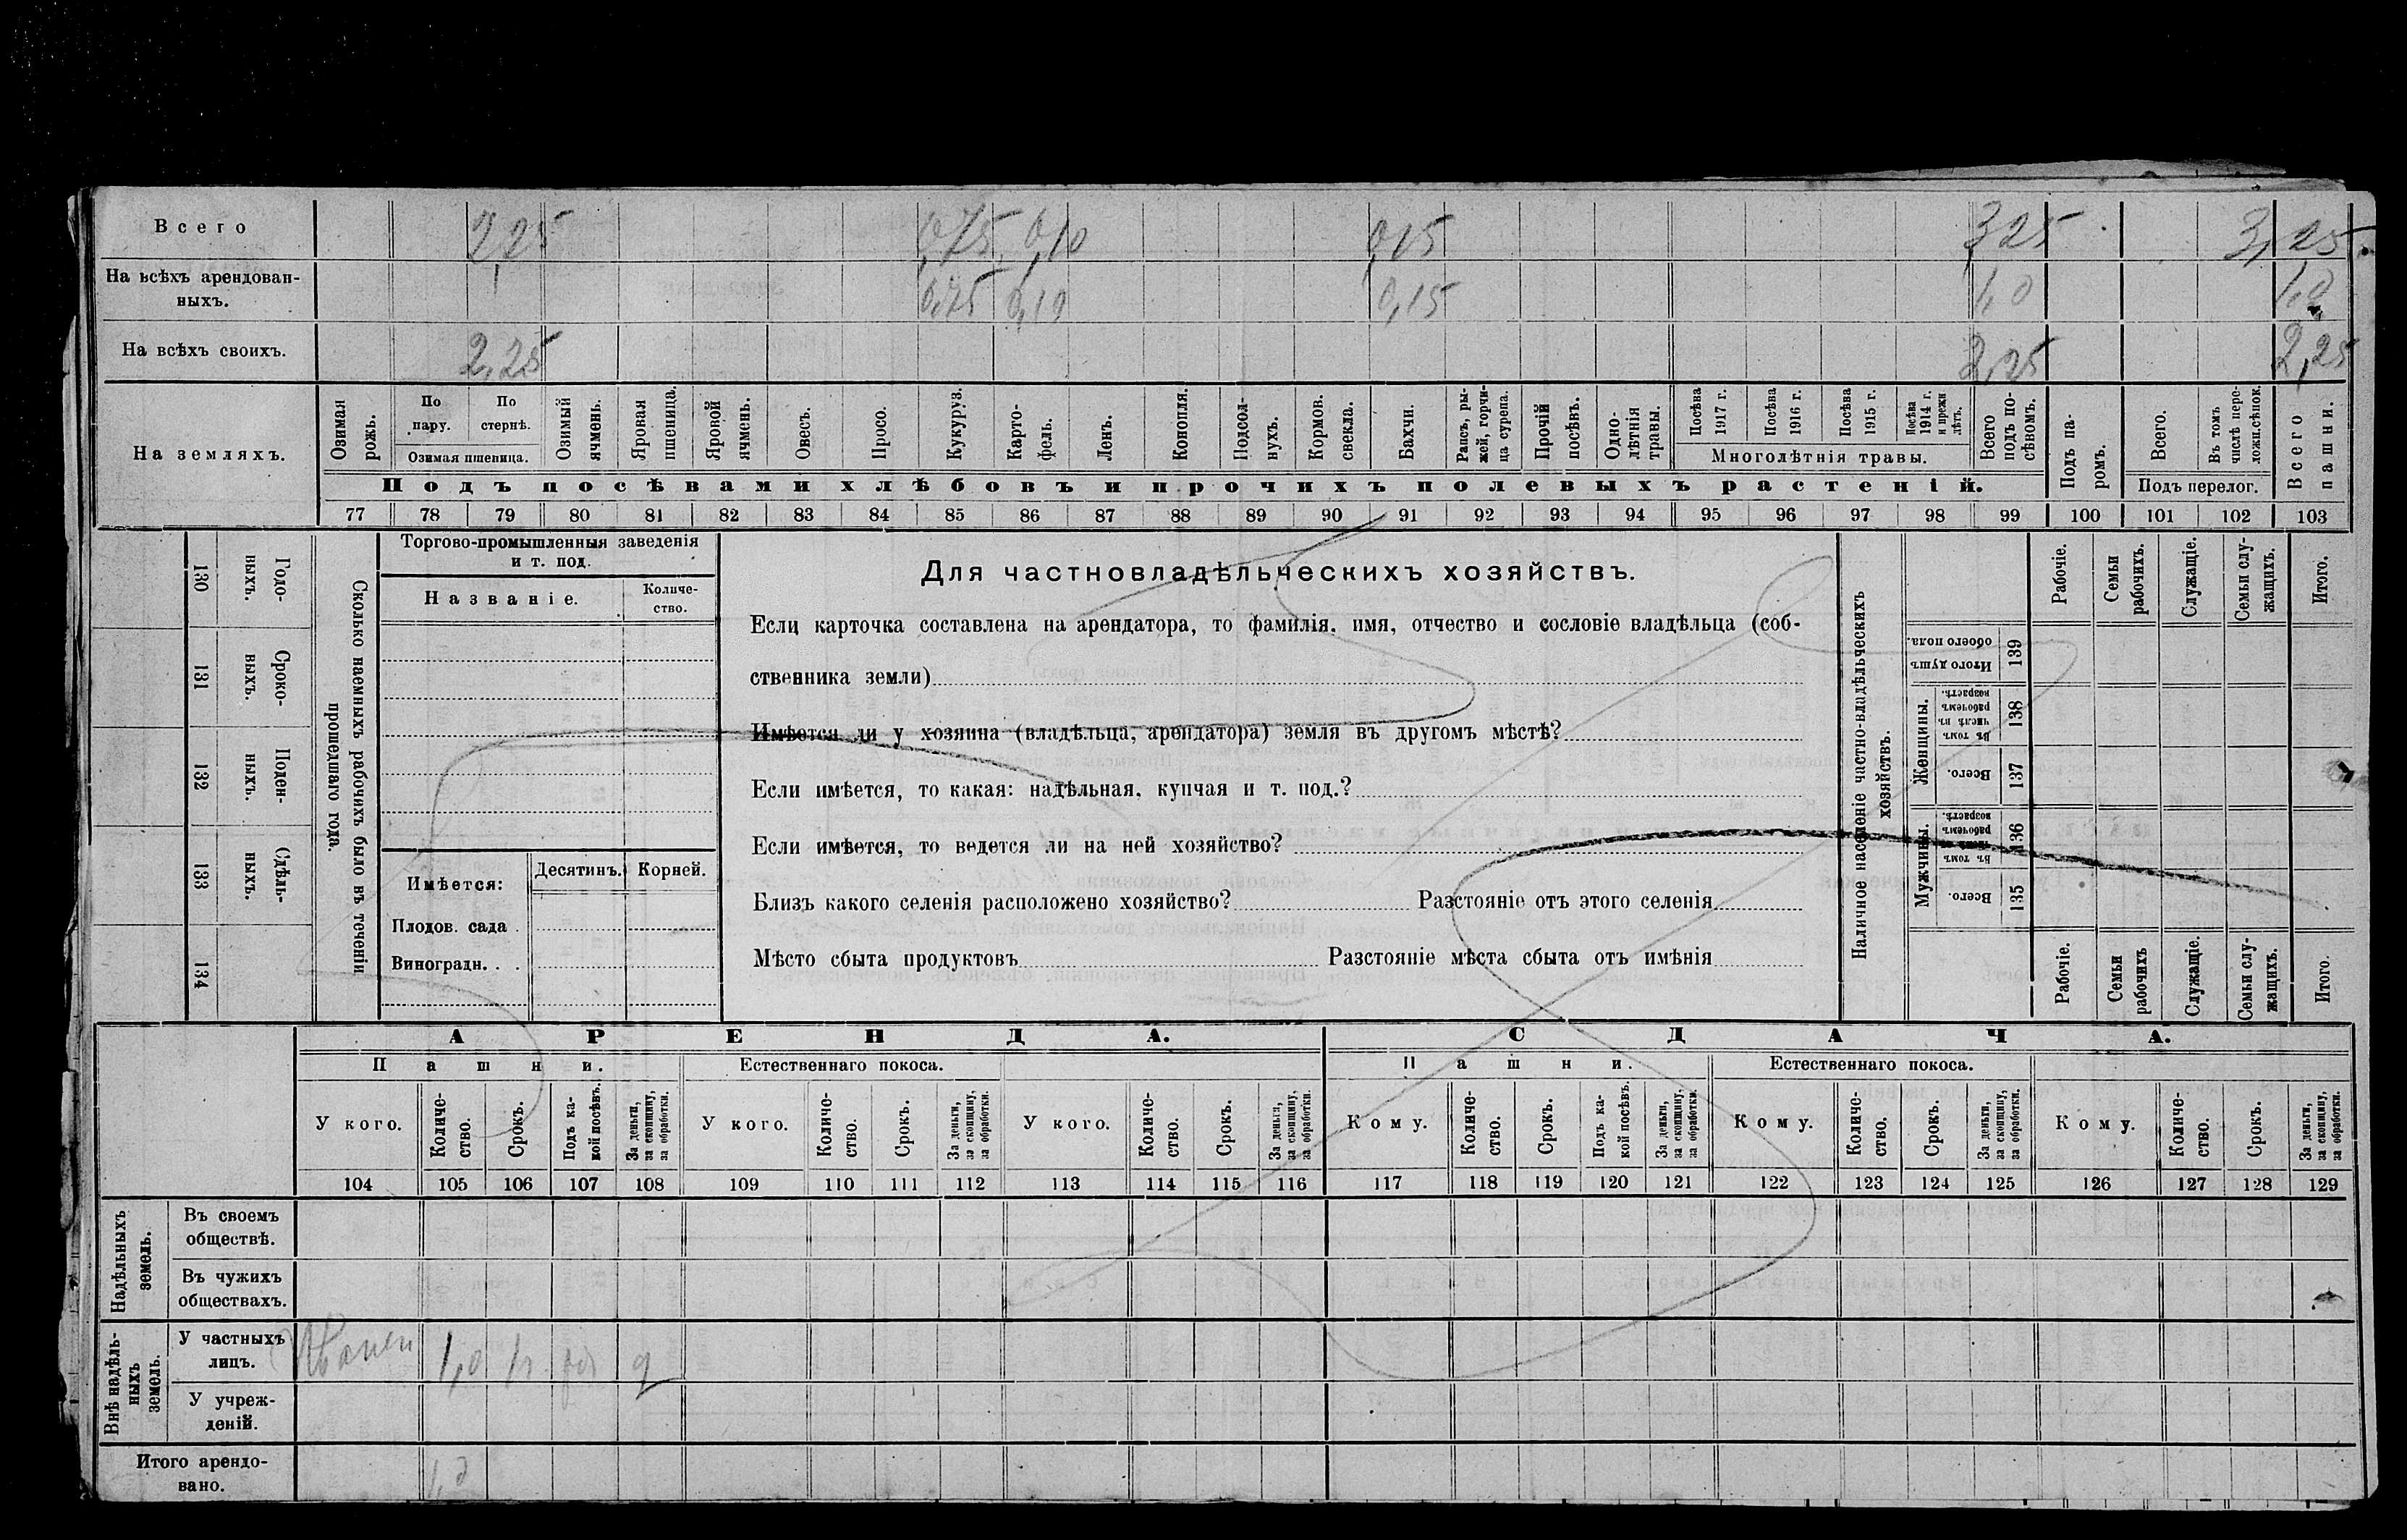 Всего 2,25 0,75 0,10 0,15 3,25 3,25
На всѣхъ арендован-
ныхъ. 0,75 0,10 0,15 1,0 1,0
На всѣхъ своихъ. 2,25 2,25 2,25
На земляхъ.
Озимая рожь.
По пару.
По стернѣ.
Озимая пшеница.
Озимый ячмень.
Яровая пшеница.
Яровой ячмень.
Овесъ.
Просо.
Кукуруз.
Карто-
фель.
Ленъ.
Конопля.
Подсол-
нухъ.
Кормов. свекла.
Бахчи.
Рапсъ, ры-
жей, горчи-
ца сурепа.
Прочій посѣвъ.
Одно-
лѣтнія травы.
Посѣва 1917 г.
Посѣва 1916 г.
Посѣва 1915 г.
Посѣва 1914 г. и прежн лѣтъ.
Многолѣтнія травы.
Всего подъ по-
сѣвомъ.
Подъ па-
ромъ.
Всего.
Въ томъ числѣ пере-
ложн.сѣнок.
Подъ перелог.
Всего пашни.
Подъ посѣвами хлѣбовъ и прочихъ полевыхъ растеній.
77 78 79 80 81 82 83 84 85 86 87 88 89 90 91 92 93 94 95 96 97 98 99 100 101 102 103
130 Годо-
ныхъ.
131 Сроко-
выхъ.
132 Поден-
ныхъ.
133 Сдѣль-
ныхъ.
134
Сколько наемныхъ рабочихъ было въ теченіи
прошедшаго года.
Торгово-промышленныя заведенія
и т. под.
Названіе.
Количе-
ство.
Имѣется:
Десятинъ. Корней.
Плодов. сада .
Виноградн. . .
Для частновладѣльческихъ хозяйствъ.
Если карточка составлена на арендатора, то фамилія, имя, отчество и сословіе владѣльца (соб-
ственника земли)
Имѣется ли у хозяина (владѣльца, арендатора) земля въ другомъ мѣстѣ?
Если имѣется, то какая: надѣльная, купчая и т. под.?
Если имѣется, то ведется ли на ней хозяйство?
Близъ какого селенія расположено хозяйство? Разстояніе отъ этого селенія
Мѣсто сбыта продуктовъ Разстояніе мѣста сбыта отъ имѣнія
Наличное населеніе частно-владѣльческихъ
хозяйствъ.
Рабочіе.
Семьи рабочихъ.
Служащіе.
Семьи слу-
жащихъ.
Итого.
Итого душъ обоего пола. 139
Женщины.
Въ томъ числѣ въ рабочемъ возрастѣ. 138
Всего. 137
Мужчины.
Въ томъ числѣ въ рабочемъ возрастѣ. 136
Всего. 135
Рабочіе.
Семьи рабочихъ
Служащіе.
Семьи слу-
жащихъ.
Итого.
АРЕНДА. СДАЧА.
Пашни. Естественнаго покоса. Пашни. Естественнаго покоса.
У кого.
Количе-
ство.
Срокъ.
Подъ ка-
кой посѣвъ.
За деньги, за скопщину, за обработки.
У кого.
Количе-
ство.
Срокъ.
За деньги, за скопщину, за обработки.
У кого.
Количе-
ство.
Срокъ.
За деньги, за скопщину, за обработки.
Кому.
Количе-
ство.
Срокъ.
Подъ ка-
кой посѣвъ.
За деньги, за скопщину, за обработки.
Кому.
Количе-
ство.
Срокъ.
За деньги, за скопщину, за обработки.
Кому.
Количе-
ство.
Срокъ.
За деньги, за скопщину, за обработки.
104 105 106 107 108 109 110 111 112 113 114 115 116 117 118 119 120 121 122 123 124 125 126 127 128 129
Надѣльныхъ земель.
Въ своемъ
обществѣ.
Въ чужихъ
обществахъ.
Внѣ надѣль-
ныхъ земель.
У частныхъ
лицъ. 1,0
У учреж-
деній.
Итого арендо-
вано. 1,0